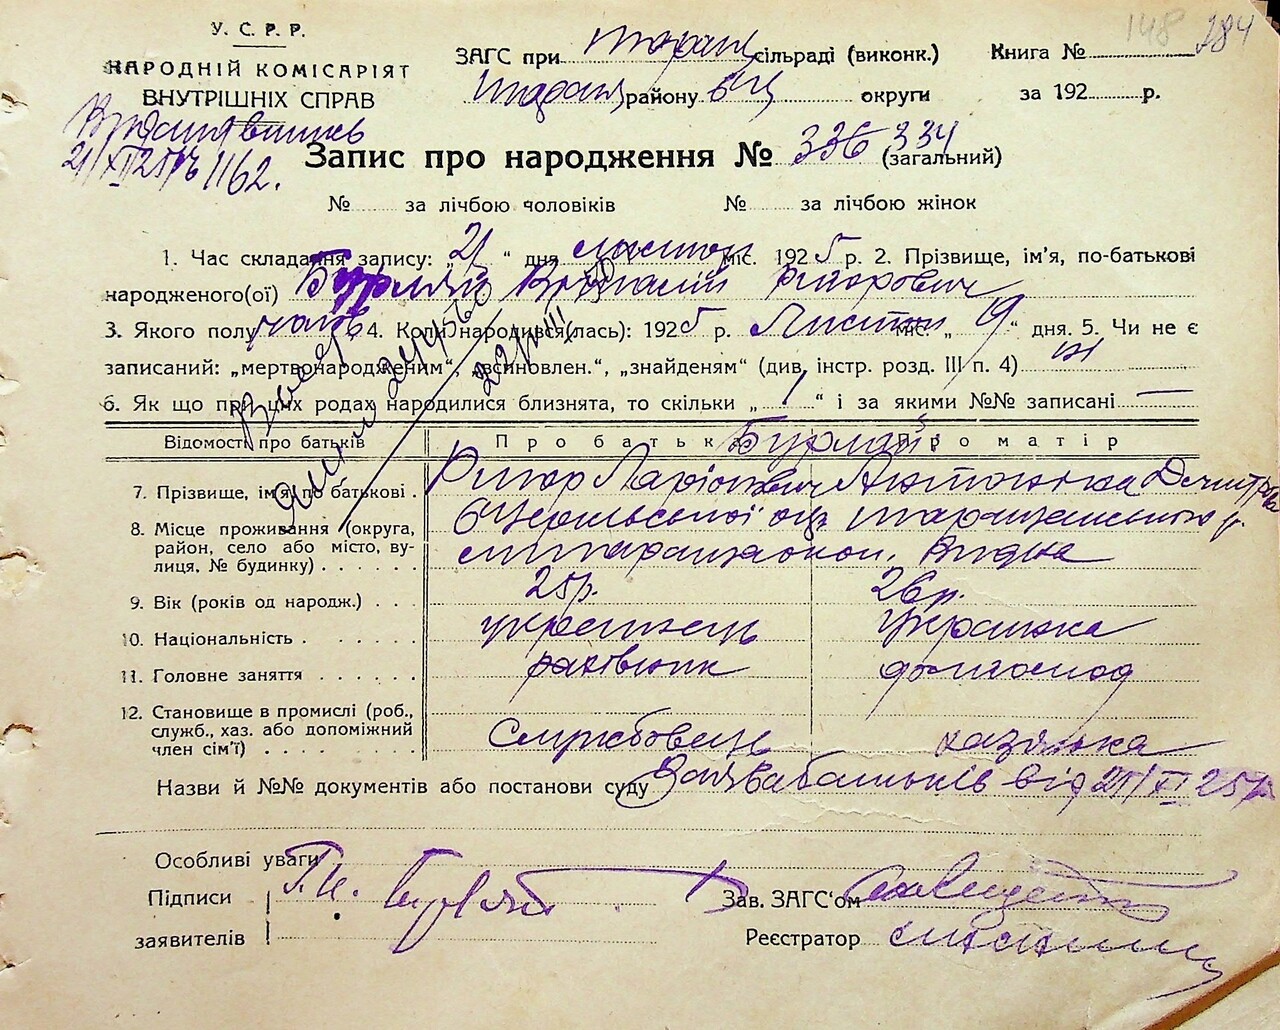 148 284
У. С. Р. Р.
НАРОДНІЙ КОМІСАРІЯТ
ВНУТРІШНІХ СПРАВ
ЗАГС при Таращ сільраді (виконк.) Книга №
Таращ району БЦ округи за 192 р.
21/XI 25 р № 1162.
Запис про народження № 336 334 (загальний)
№ за лічбою чоловіків № за лічбою жінок
1. Час складання запису: „ 21 “ дня листоп міс. 192 5 р. 2. Прізвище, ім'я, по-батькові
народженого(ої) Бурлай Віталій Григорович
3. Якого полу чолов 4. Коли народився(лась): 192 5 р. Листоп міс. „ 9 “ дня. 5. Чи не є
записаний: „мертвонародженим“, „всиновлен.“, „знайденям“ (див. інстр. розд. III п. 4) ні
6. Як що при цих родах народилися близнята, то скільки „ 1 “ і за якими №№ записані —
Відомості про батьків Про батька Про матір
Бурлай
7. Прізвище, ім'я, по батькові . Григор Ларіонович Антоніна Дмитрів
8. Місце проживання (округа, Б Церківської окр Таращанського р.
район, село або місто, вулиця, № будинку) . . . . . . м Таращі
9. Вік (років од народж.) . . . 25 р. 26 р.
10. Національність . . . . . . українець українка
11. Головне заняття . . . . . . рахівник домогоспод
12. Становище в промислі (роб.,
служб., хаз. або допоміжний
член сім'ї) . . . . . . . . Службовець хазяйка
Назви й №№ документів або постанови суду Заява батьків від 21/XI 25 р
Особливі уваги
Підписи
заявителів Г. И. Бурлай
Зав. ЗАГС'ом
Реєстратор